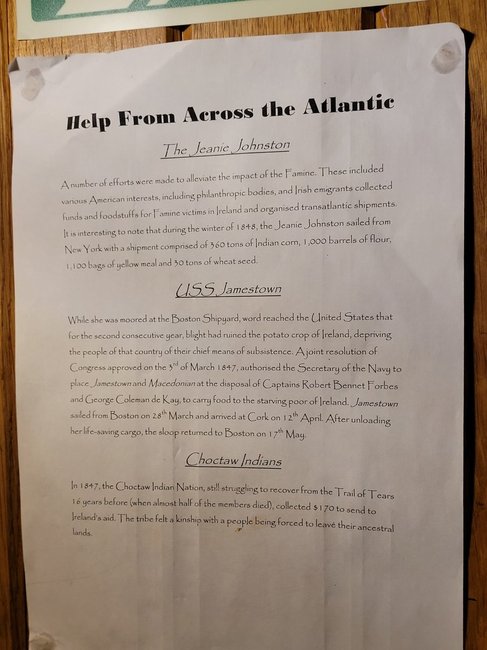 Help From Across the Atlantic
The Jeanie Johnston
A number of efforts were made to alleviate the impact of the Famine. These included
various American interests, including philanthropic bodies, and Irish emigrants collected
funds and foodstuffs for Famine victims in Ireland and organised transatlantic shipments.
It is interesting to note that during the winter of 1848, the Jeanie Johnston sailed from
New York with a shipment comprised of 360 tons of Indian corn, 1,000 barrels of flour,
1,100 bags of yellow meal and 30 tons of wheat seed.
U.S.S. Jamestown
While she was moored at the Boston Shipyard, word reached the United States that
for the second consecutive year, blight had ruined the potato crop of Ireland, depriving
the people of that country of their chief means of subsistence. A joint resolution of
Congress approved on the 3rd of March 1847, authorised the Secretary of the Navy to
place Jamestown and Macedonian at the disposal of Captains Robert Bennet Forbes
and George Coleman de Kay, to carry food to the starving poor of Ireland. Jamestown
sailed from Boston on 28th March and arrived at Cork on 12th April. After unloading
her life-saving cargo, the sloop returned to Boston on 17th May.
Choctaw Indians
In 1847, the Choctaw Indian Nation, still struggling to recover from the Trail of Tears
16 years before (when almost half of the members died), collected $170 to send to
Ireland's aid. The tribe felt a kinship with a people being forced to leave their ancestral
lands.